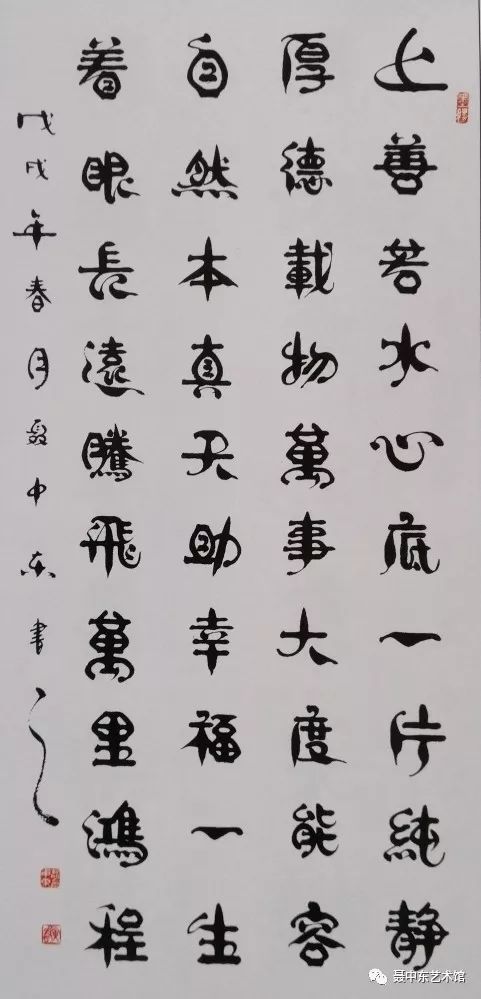 上善若水心底一片純静
厚德載物萬事大度能容
自然本真天助幸福一生
着眼長遠騰飛萬里鴻程
戊戌年春月聂中东書之
聂中东艺术馆